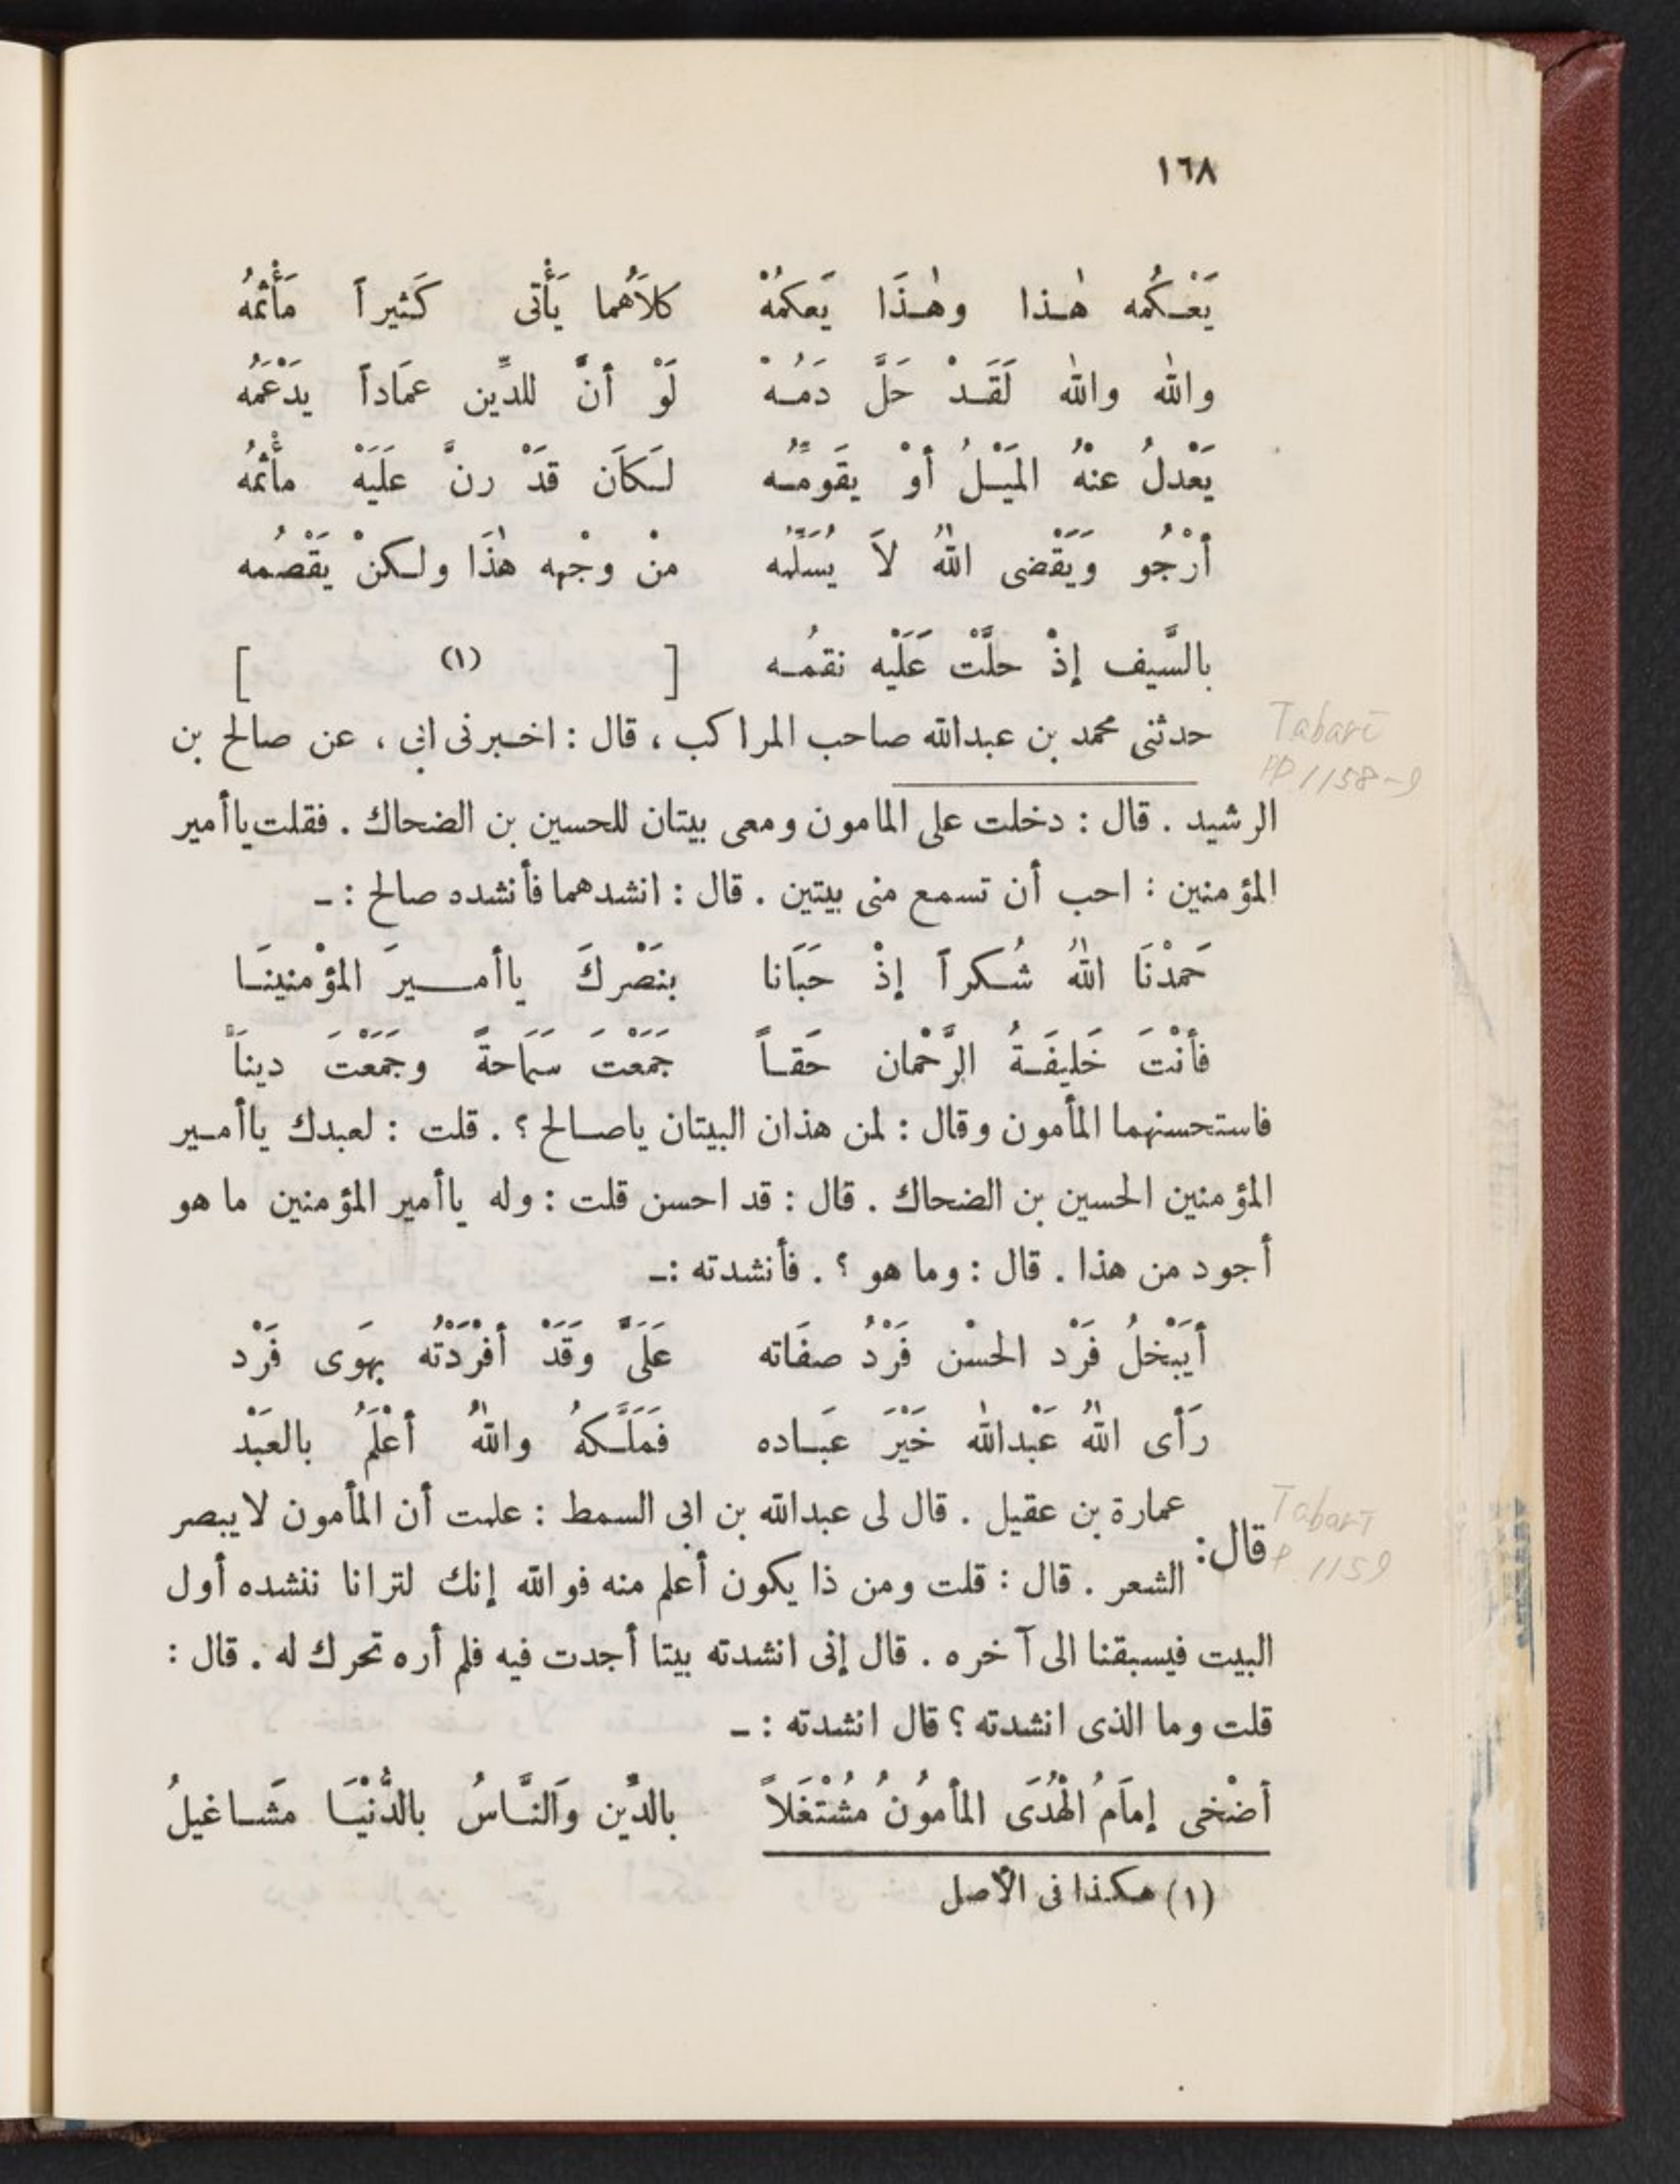 ١٦٨
يَعْـكُمه هٰـذا وهٰـذَا يَعكمُهْ كلاَهُما يَأْتى كَثيراً مَأْثمُهُ
والله والله لَقَـدْ حَلَّ دَمُـهْ لَوْ أنَّ للدِّين عمَاداً يدْعَمُه
يَعْدلُ عنْهُ المَيْـلُ أوْ يقَومُّـه لـكَاَن قدَْ رنَّ علَيَهْ مأْثمُه
أرْجُو وَيَقْضى اللهُ لاَ يُسَلِّمُه منْ وجْهه هٰذَا ولـكنْ يَقْصُمه
بالسَّيف إذْ حلَّتْ عَلَيْه نقمُـه [ (١) ]
حدثنى محمد بن عبدالله صاحب المراكب ، قال : اخـبرنى ابى ، عن صالح بن
الرشيد . قال : دخلت على المامون ومعى بيتان للحسين بن الضحاك . فقلت ياأمير
المؤمنين : احب أن تسمع منى بيتين . قال : انشدهما فأنشده صالح : ـ
حَمدْنَا اللهُ شُـكراً إذْ حَبَانا بنَصْركَ ياأمـــيرَ المؤْمنينَـا
فأنْتَ خَليفَـةُ الرَّحْمان حَقـاً جَمَعْتَ سَمَاحةً وجَمَعْتَ ديناً
فاستحسنهما المأمون وقال : لمن هذان البيتان ياصـالح ؟ . قلت : لعبدك ياأمـير
المؤمنين الحسين بن الضحاك . قال : قد احسن قلت : وله ياأمير المؤمنين ما هو
أجود من هذا . قال : وما هو ؟ . فأنشدته :ـ
أيَبْخلُ فَرْد الحسْن فَرْدُ صفَاته عَلَىَّ وَقَدْ أفْرَدْتُه بهَوى فَرْد
رَأى اللهُ عَبْدالله خَيْرَ عبَـاده فَملَّـكهُ واللهُ أعْلَمُ بالعَبْد
قال : عمارة بن عقيل . قال لى عبدالله بن ابى السمط : علمت أن المأمون لايبصر
الشعر . قال : قلت ومن ذا يكون أعلم منه فوالله إنك لترانا ننشده أول
البيت فيسبقنا الى آخره . قال إنى انشدته بيتا أجدت فيه فلم أره تحرك له . قال :
قلت وما الذى انشدته ؟ قال انشدته : ـ
أضْحٰى إمَامُ الْهُدَى المأمُونُ مُشْتَغلاً بالدِّين وَالنَّـاسُ بالدُّنْيَـا مشَـاغيلُ
(١) هكـذا فى الأصل
Tabarī
PP 1158-9
Tabarī
P. 1159